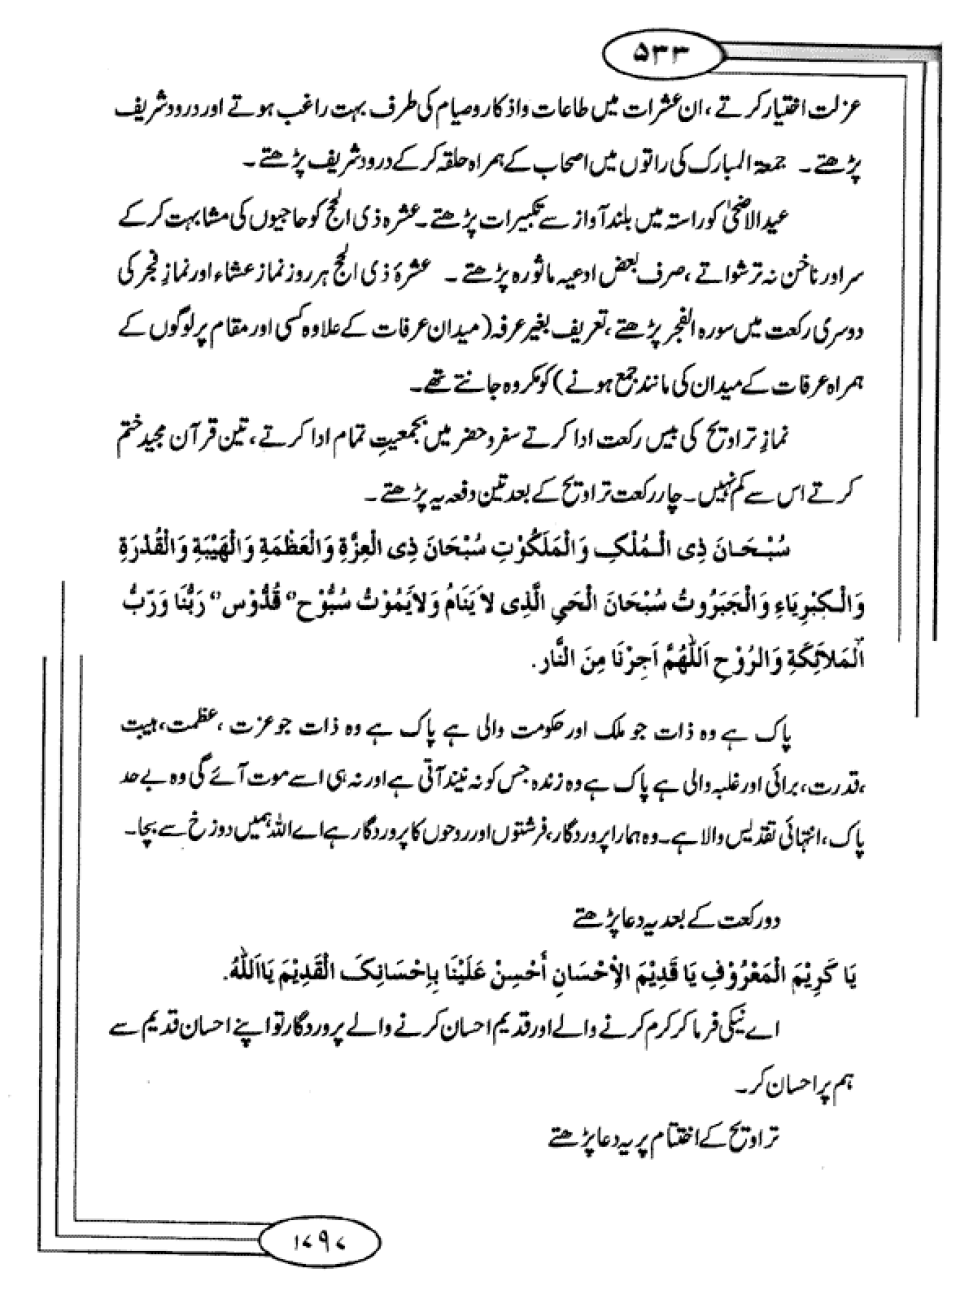 ۵۳۳
عزلت اختیار کرتے ، ان عشرات میں طاعات واذکار و صیام کی طرف بہت راغب ہوتے اور درود شریف
پڑھتے ۔ جمعۃ المبارک کی راتوں میں اصحاب کے ہمراہ حلقہ کر کے درود شریف پڑھتے ۔
عید الاضحیٰ کو راستہ میں بلند آواز سے تکبیرات پڑھتے ۔ عشرہ ذی الحج کو حاجیوں کی مشابہت کر کے
سر اور ناخن نہ ترشواتے ، صرف بعض ادعیہ ماثورہ پڑھتے ۔ عشرۂ ذی الحج ہر روز نماز عشاء اور نمازِ فجر کی
دوسری رکعت میں سورہ الفجر پڑھتے ، تعریف بغیر عرفہ ( میدان عرفات کے علاوہ کسی اور مقام پر لوگوں کے
ہمراہ عرفات کے میدان کی مانند جمع ہونے ) کو مکروہ جانتے تھے ۔
نمازِ تراویح کی بیس رکعت ادا کرتے سفر و حضر میں بجمعیتِ تمام ادا کرتے ، تین قرآن مجید ختم
کرتے اس سے کم نہیں ۔ چار رکعت تراویح کے بعد تین دفعہ یہ پڑھتے ۔
سُبْحَانَ ذِی الْمُلْکِ وَالْمَلَکُوْتِ سُبْحَانَ ذِی الْعِزَّةِ وَالْعَظْمَةِ وَالْهَيْبَةِ وَالْقُدْرَةِ
وَالْکِبْرِیَاءِ وَالْجَبَرُوتُ سُبْحَانَ الْحَیِ الَّذِی لاَ یَنَامُ وَلاَ یَمُوْتُ سُبُّوْح‘‘ قُدُّوْس‘‘ رَبُّنَا وَرَبُّ
الْمَلاَئِکَةِ وَالرُّوْحِ اَللّٰهُمَّ اَجِرْنَا مِنَ النَّارِ.
پاک ہے وہ ذات جو ملک اور حکومت والی ہے پاک ہے وہ ذات جو عزت ، عظمت ، ہیبت
، قدرت ، برائی اور غلبہ والی ہے پاک ہے وہ زندہ جس کو نہ نیند آتی ہے اور نہ ہی اسے موت آئے گی وہ بے حد
پاک ، انتہائی تقدیس والا ہے ۔ وہ ہمارا پروردگار ، فرشتوں اور روحوں کا پروردگار ہے اے اللہ ہمیں دوزخ سے بچا ۔
دو رکعت کے بعد یہ دعا پڑھتے
یَا کَرِیْمَ الْمَعْرُوْفِ یَا قَدِیْمَ الْإِحْسَانِ أَحْسِنْ عَلَیْنَا بِإِحْسَانِکَ الْقَدِیْمَ یَا اَللّٰهُ.
اے نیکی فرما کر کرم کرنے والے اور قدیم احسان کرنے والے پروردگار تو اپنے احسان قدیم سے
ہم پر احسان کر ۔
تراویح کے اختتام پر یہ دعا پڑھتے
۱۷۹۷